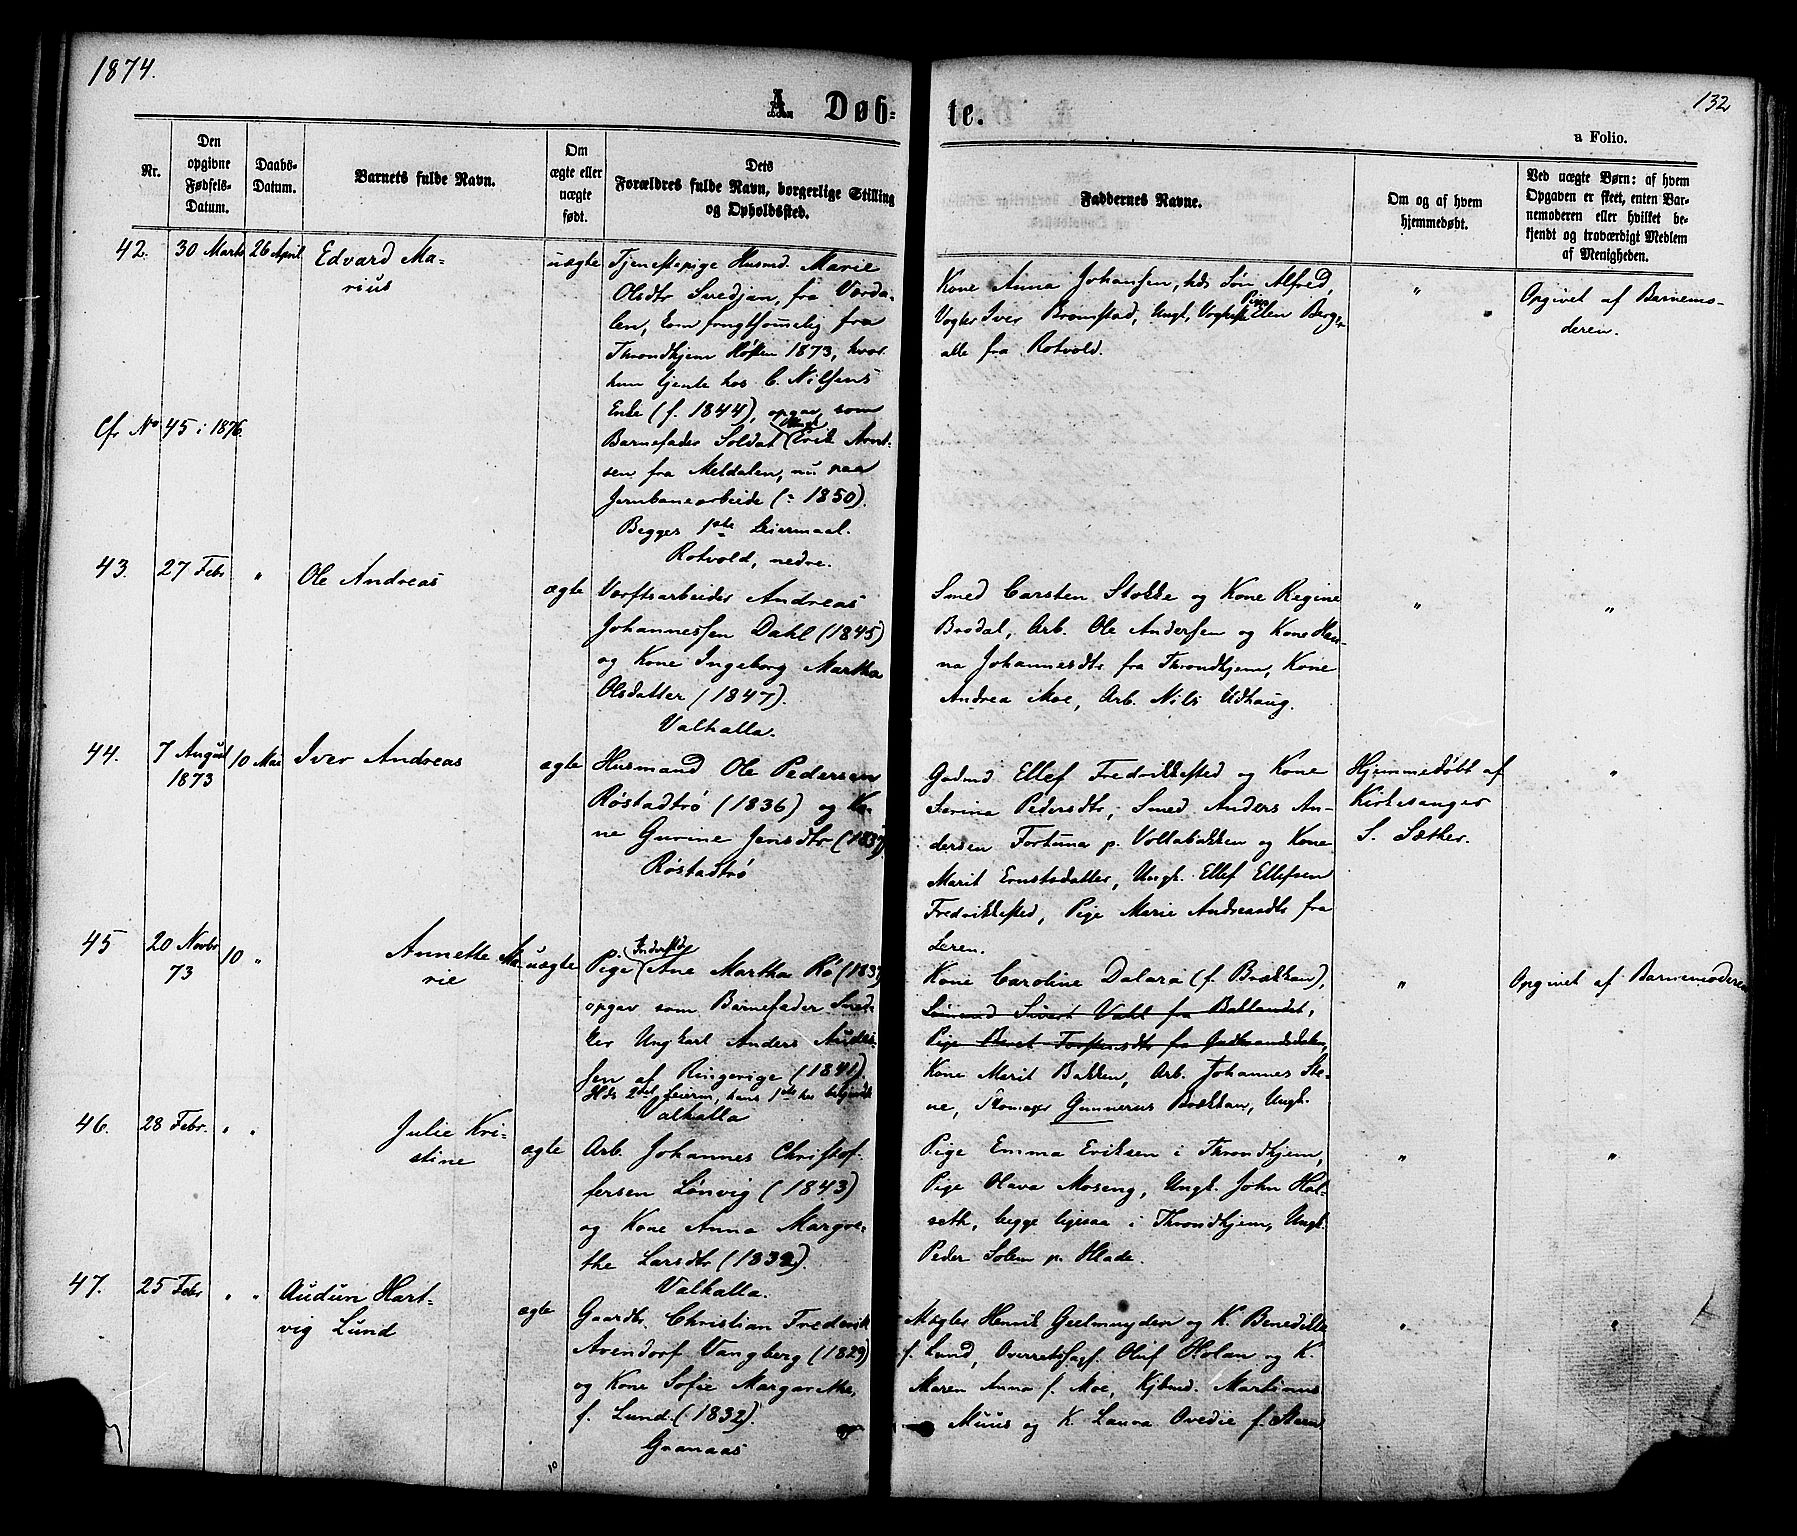 1874.
132
A. Døb-
te.
a Folio.
Nr.
Den
opgivne
Fødsels-
Datum.
Daabs-
Datum.
Barnets fulde Navn.
Om
ægte eller
uægte
født.
Dets
Forældres fulde Navn, borgerlige Stilling
og Opholdssted.
Faddernes Navne.
Om og af hvem
hjemmedøbt.
Ved uægte Børn: af hvem
Opgaven er skeet, enten Bar-
nemoderen eller hvilket be-
kjendt og troværdigt Medlem
af Menigheden.
42. 30 Marts 26 April Edvard Ma-
rius
uægte
Tjenestepige Husmd. Marie
Olsdtr Svedjan, fra Værda-
len, kom frugtsommelig fra
Throndhjem Høsten 1873, hvor
hun tjente hos C. Nilsens
Enke (f. 1844), opgav som
Barnefader Soldat Ungk. Erik Arnt-
sen fra Meldalen, nu paa
Jernbanearbeide (: 1850).
Begges 1ste Leiermaal.
Rotvold, nedre.
Cfr No 45 i 1876.
Kone Anna Johansen, hds Søn Alfred,
Vogter Iver Bromstad, Ungk, Pige Ellen Berg,
alle fra Rotvold.
"
Opgivet af Barnemo-
deren.
43. 27 Febr " Ole Andreas
ægte
Værftsarbeider Andreas
Johannessen Dahl (1845)
og Kone Ingeborg Martha
Olsdatter (1847).
Valhalla.
Smed Carsten Stokke og Kone Regine
Brodal, Arb. Ole Andersen og Kone Han-
na Johannesdtr fra Throndhjem, Kone
Andrea Moe, Arb. Nils Udhaug.
"
"
44. 7 August
1873
10 Mai Iver Andreas
ægte
Husmand Ole Pedersen
Røstadtrø (1836) og Ko-
ne Gurine Jensdtr (1837)
Røstadtrø
Gadmd Ellef Fredrikkested og Kone
Serina Pedersdtr, Smed Anders An-
dersen Fortuna p. Vollabakken og Kone
Marit Ernstsdatter, Ungk. Ellef Ellefsen
Fredrikkested, Pige Marie Andreasdtr fra
Leren.
Hjemmedøbt af
Kirkesanger
S. Sæther.
"
45 20 Novbr
73
10 " Annette Ma-
rie
uægte
Pige Andersdtr Ane Martha Rø (183
opgav som Barnefader Sned-
ker Ungkarl Anders
sen af Ringerige (1841).
Hds 2det Leierm, hans 1ste her bekjendt
Valhalla
Kone Caroline Dalara (f. Brækkan),
Sivert Vahl fra Baklandet,
Pige Beret fra Gudbrandsdalen,
Kone Marit Bakken, Arb. Johannes Ste-
ne, Skomager Gunnerus Brækkan, Ungk.
"
Opgivet af Barnemoderen
46. 28 Febr. " " Julie Kri-
stine
ægte
Arb. Johannes Christof-
fersen Lønvig (1843)
og Kone Anna Margre-
the Larsdtr (1832).
Valhalla.
Pige Emma Eriksen i Throndhjem,
Pige Olava Moseng, Ungk. John Hal-
seth, begge ligesaa i Throndhjem, Ungk.
Peder Solem p. Hlade.
"
"
47. 25 Febr " " Audun Hart-
vig Lund
ægte
Gaardbr. Christian Frederik
Avendorf Vangberg (1829)
og Kone Sofie Margarethe,
f. Lund (1832).
Granaas
Mægler Henrik Geelmuyden og K. Benedikte
f. Lund, Overretssagf. Oluf Holan og K.
Maren Anna f. Moe, Kjbmd. Martinus
Muus og K. Laura Ovedie f.
"
"
10